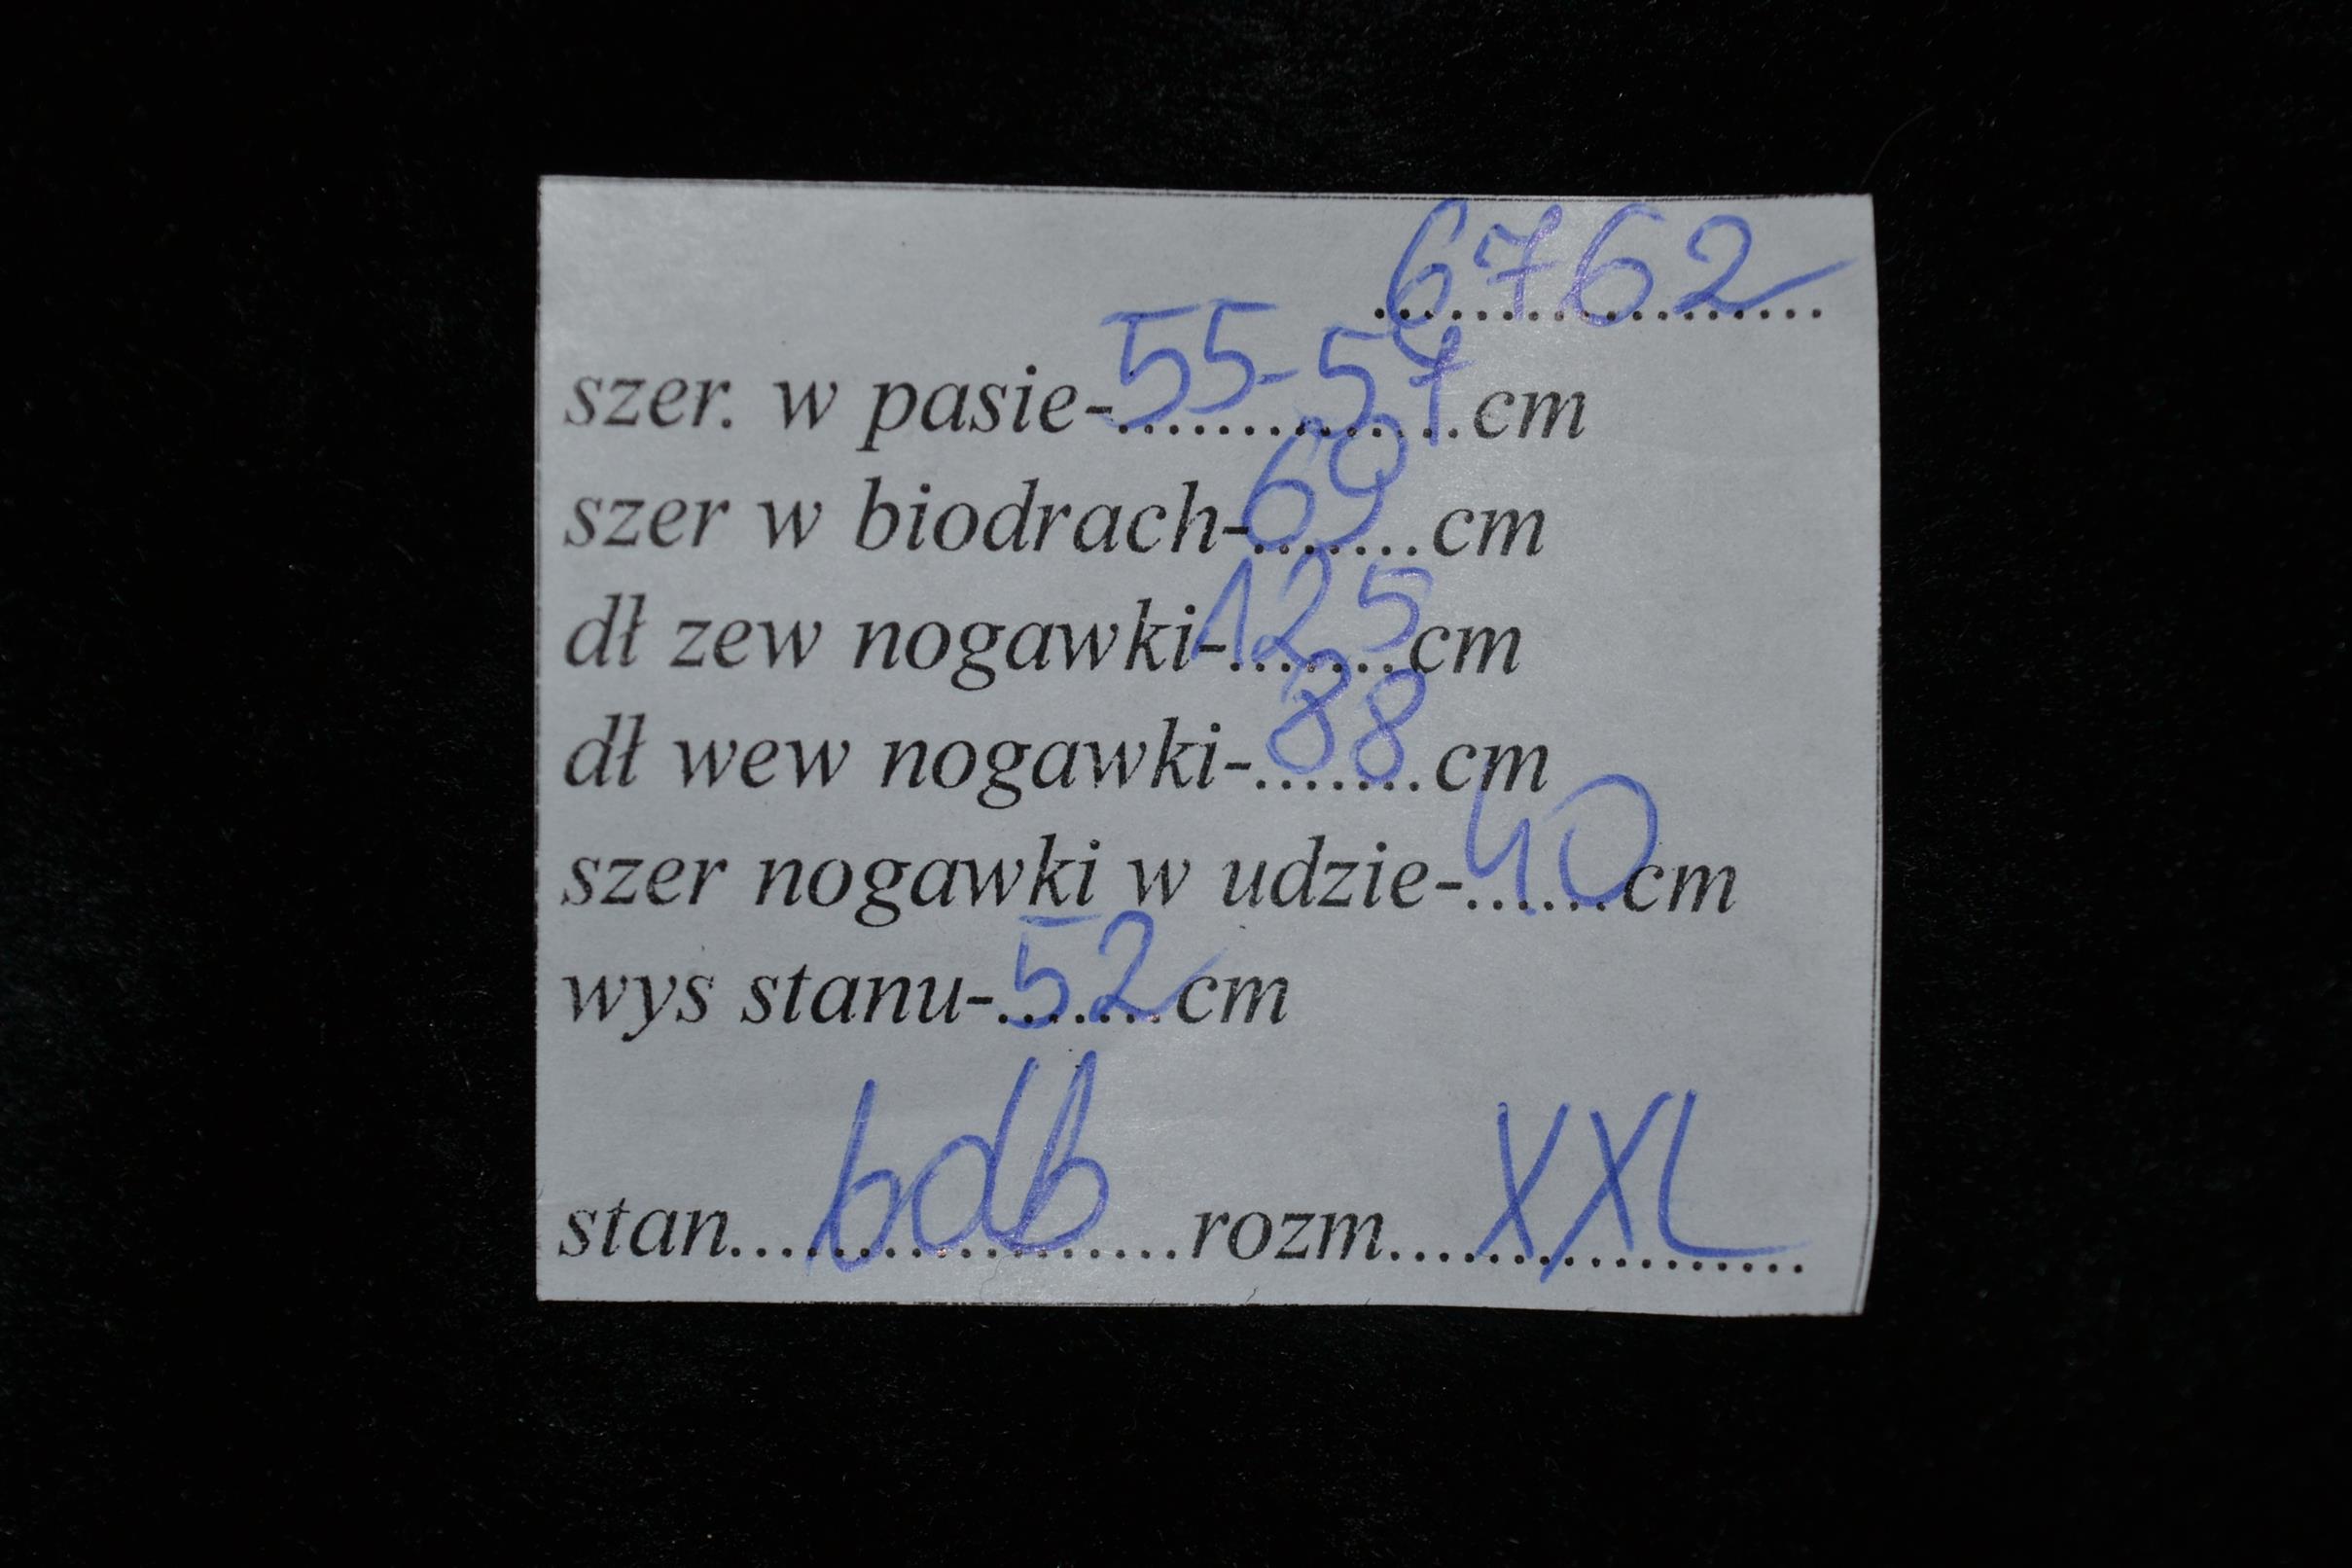 6762
szer. w pasie-55-57cm
szer w biodrach-69cm
dł zew nogawki-125cm
dł wew nogawki-88cm
szer nogawki w udzie-40cm
wys stanu-52cm
stan....bdb....rozm....XXL....